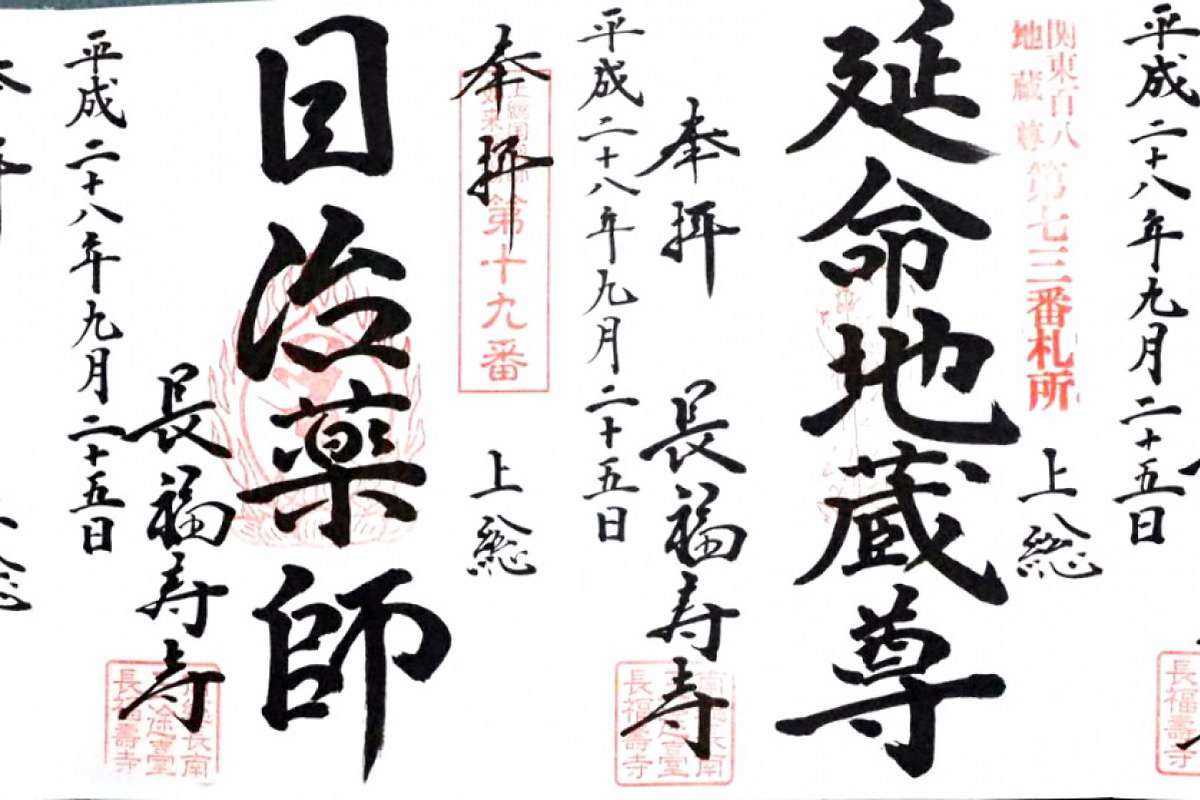 平成二十八年九月二十五日
関東百八
地蔵尊
第七三番札所
奉拝
上総
延命地蔵尊
長福寿寺
長南
長福壽寺
平成二十八年九月二十五日
奉拝
第十九番
上総
目治薬師
長福寿寺
長南
長福壽寺
平成二十八年九月二十五日
長福壽寺